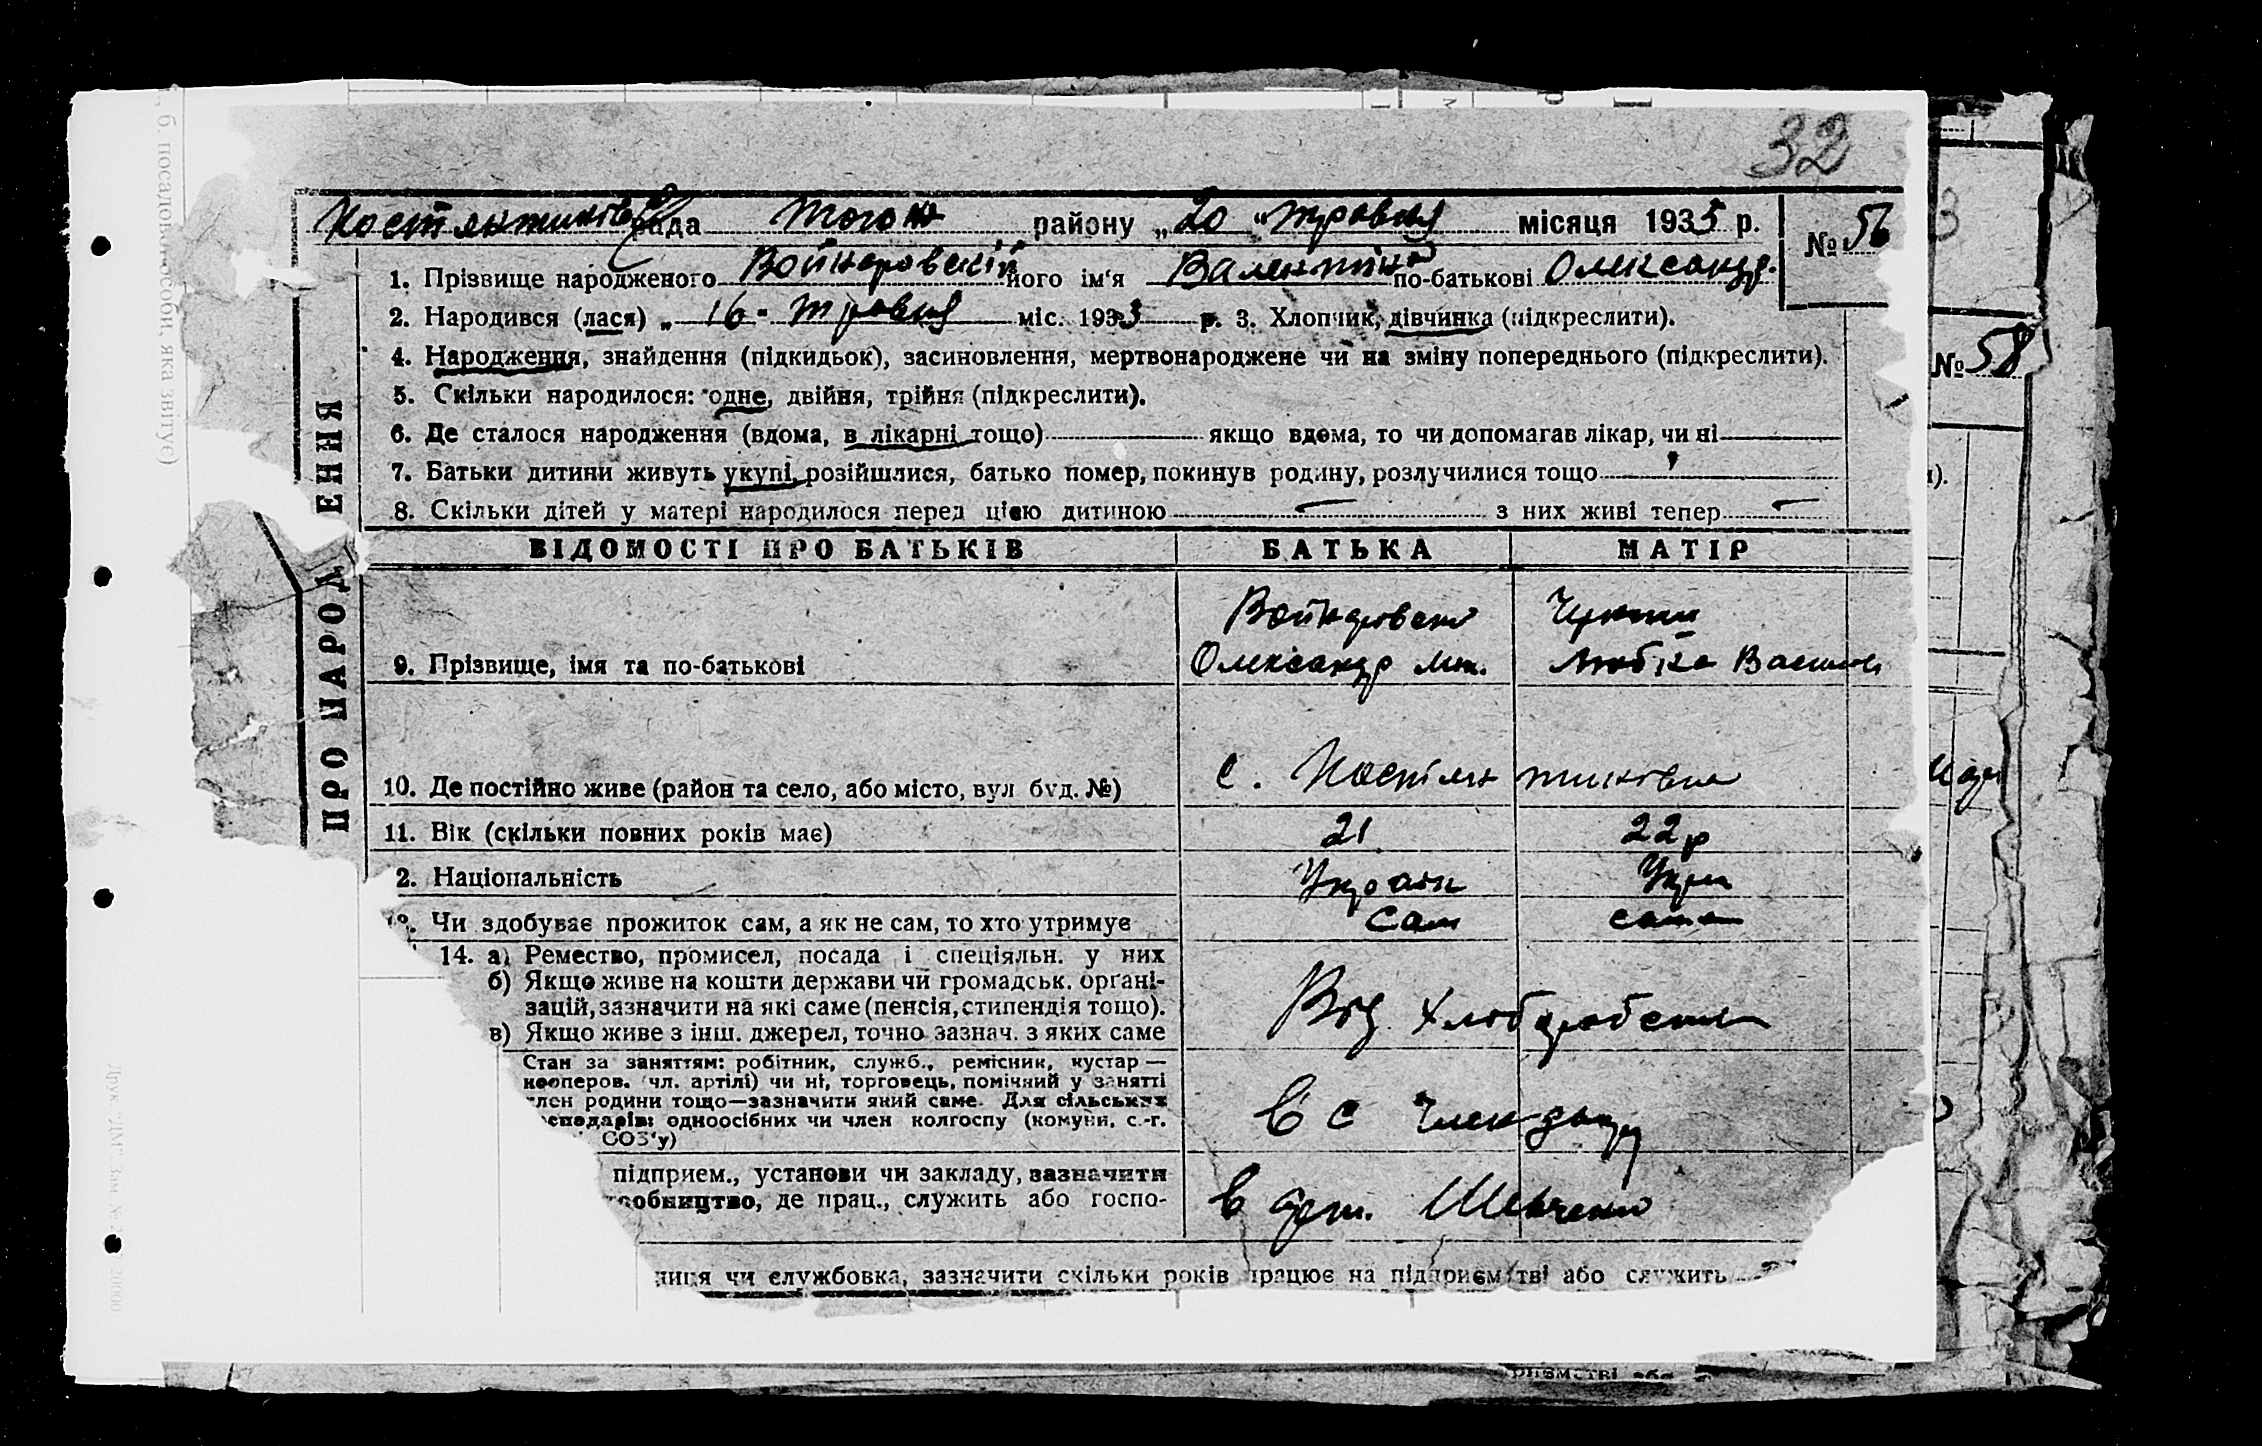 32
Костянтинів рада того ж району „20 “ травня місяця 1935 р. № 56
1. Прізвище народженого Войнаровский його ім‘я Валентина по-батькові Олександр.
2. Народився (лася) „ 16 " травня міс. 1933 р. 3. Хлопчик, дівчинка (підкреслити).
4. Народження, знайдення (підкидьок), засиновлення, мертвонароджене чи на зміну попереднього (підкреслити).
5. Скільки народилося: одне, двійня, трійня (підкреслити).
6. Де сталося народження (вдома, в лікарні тощо) якщо вдома, то чи допомагав лікар, чи ні
7. Батьки дитини живуть укупі, розійшлися, батько помер, покинув родину, розлучилися тощо
8. Скільки дітей у матері народилося перед цією дитиною — з них живі тепер —
ПРО НАРОД ЕННЯ
ВІДОМОСТІ ПРО БАТЬКІВ БАТЬКА МАТІР
Войнаровский
9. Прізвище, імя та по-батькові Олександр
10. Де постійно живе (район та село, або місто, вул буд. №) с. Костянтинівка
11. Вік (скільки повних років має) 21 22 р
2. Національність Україн Укра
Чи здобуває прожиток сам, а як не сам, то хто утримує сам сама
14. а) Ремество, промисел, посада і спеціяльн. у них
б) Якщо живе на кошти держави чи громадськ. органі-
зацій, зазначити на які саме (пенсія, стипендія тощо).
в) Якщо живе з інш. джерел, точно зазнач. з яких саме
Від хлібробства
Стан за заняттям: робітник, служб., ремісник, кустар —
кооперов. чл. артілі) чи ні, торговець, помічний у занятті
член родини тощо—зазначити який саме. Для сільських
господарів: одноосібних чи член колгоспу (комуни, с.-г.
СОЗ‘у)
підприєм., установи чи закладу, зазначити
робництво, де прац., служить або госпо-
в арт. Шевченко
ниця чи службовка, зазначити скільки років працює на підприємстві або служить
№ 58
б. посадової особи, яка звітує)